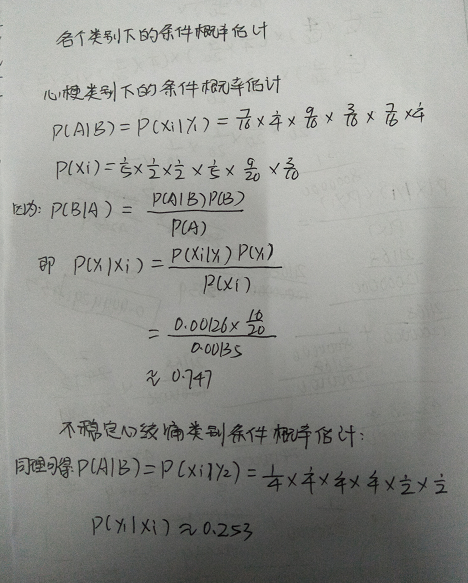 各个类别下的条件概率估计
心梗类别下的条件概率估计
P(A|B) = P(Xi|Yi) = 7/16 × 1/4 × 9/16 × 3/16 × 7/16 × 1/4
P(Xi) = 1/5 × 1/2 × 1/2 × 1/5 × 9/20 × 3/10
因为: P(B|A) = P(A|B)P(B) / P(A)
即 P(Yi|Xi) = P(Xi|Yi) P(Yi) / P(Xi)
= 0.00126 × 16/20 / 0.00135
≈ 0.747
不稳定心绞痛类别条件概率估计:
同理可得 P(A|B) = P(Xi|Y2) = 1/4 × 1/4 × 1/4 × 1/4 × 1/2 × 1/2
P(Yi|Xi) ≈ 0.253